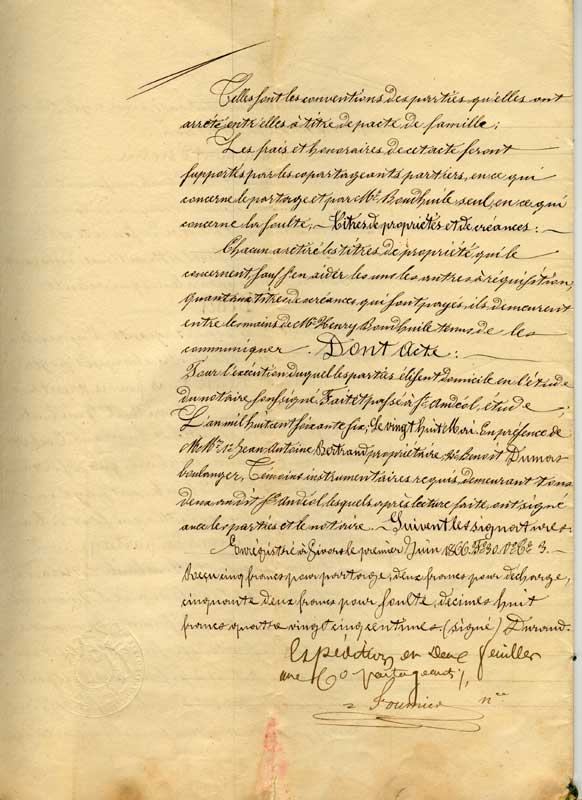 Telles sont les conventions des parties qu'elles ont
arrêté entre elles à titre de pacte de famille;
Les frais et honoraires de cet acte seront
supportés par les copartageants par tiers, en ce qui
concerne le partage et par Mr. Boudhuile seul, en ce qui
concerne la soulte, — Titres de propriétés et de créances: —
Chacun a retiré les titres de propriété qui le
concernent, sauf s'en aider les uns les autres à réquisition,
quant aux titres de créances, qui sont payés, ils demeurent
entre les mains de Mr. Henry Boudhuile tenus de les
communiquer. Dont Acte: —
Pour l'exécution duquel les parties élisent domicile en l'étude
du notaire soussigné. Fait et passé à St. Andéol, étude
L'an mil huit cent soixante six, le vingt huit Mai. En présence de
M.Mrs. 1o. Jean Antoine Bertrand propriétaire 2o. Benoit Dumas
boulanger, Témoins instrumentaires requis, demeurant tous
deux audit St. Andéol, lesquels après lecture faite, ont signé
avec les parties et le notaire. — Suivent les signatures —
Enregistré à Givors le premier Juin 1866 Fo. 30 Vo. Ce. 3. —
Reçu cinq francs pour partage, deux francs pour décharge,
cinquante deux francs pour soulte, décimes huit
francs quatre vingt cinq centimes. (signé) Durand.
Expédition en deux feuilles
une Co-partageants /.
Fournier nre